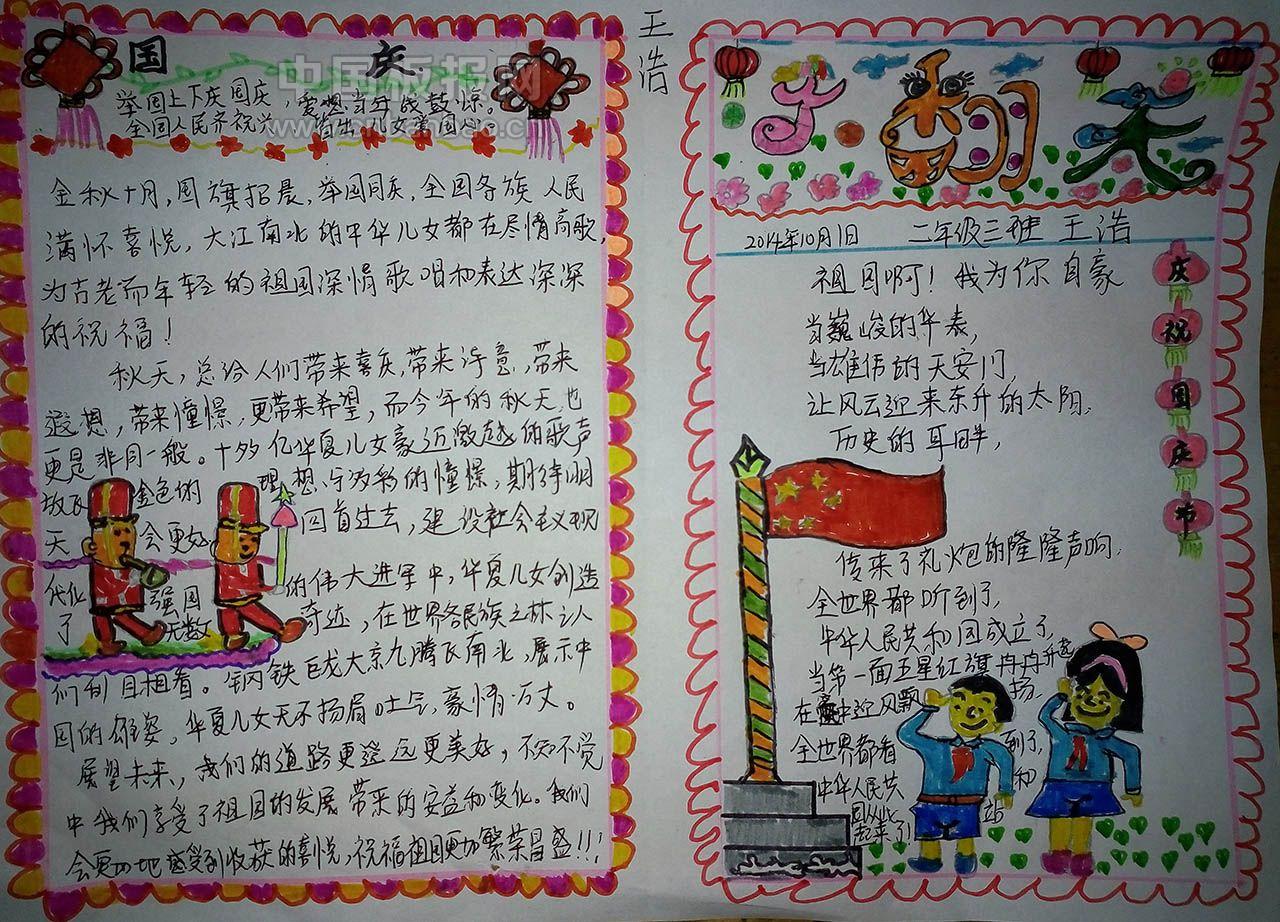 王浩
国庆
中国板报网
举国上下庆国庆，
全国人民齐祝兴
金秋十月，国旗招展，举国同庆，全国各族人民
满怀喜悦，大江南北的中华儿女都在尽情高歌，
为古老而年轻的祖国深情歌唱和表达深深
的祝福！
秋天，总给人们带来喜庆，带来诗意，带来
遐想，带来憧憬，更带来希望，而今年的秋天也
更是非同一般。十多亿华夏儿女豪迈激越的歌声
放飞金色的理想，的憧憬，期待明
天会更好 回首过去，建设社会主义现
代化强国的伟大进军中，华夏儿女创造
了无数奇迹，在世界各民族之林之人
们刮目相看。钢铁巨龙大京九腾飞南北，展示中
国的雄姿，华夏儿女无不扬眉吐气，豪情万丈。
展望未来，我们的道路更遥远更美好，不知不觉
中我们享受了祖国的发展带来的安益和变化。我们
会更加地感受到收获的喜悦，祝福祖国更加繁荣昌盛！！！
2014年10月1日 二年级三班 王浩
庆祝国庆节
祖国啊！我为你自豪
当巍峻的华表，
当雄伟的天安门，
让风云迎来东升的太阳，
历史的耳畔，
传来了礼炮的隆隆声响，
全世界都听到了，
中华人民共和国成立了，
当第一面五星红旗冉冉升起
在中迎风飘扬，
全世界都看到了，
中华人民共和
国从此站
起来了！